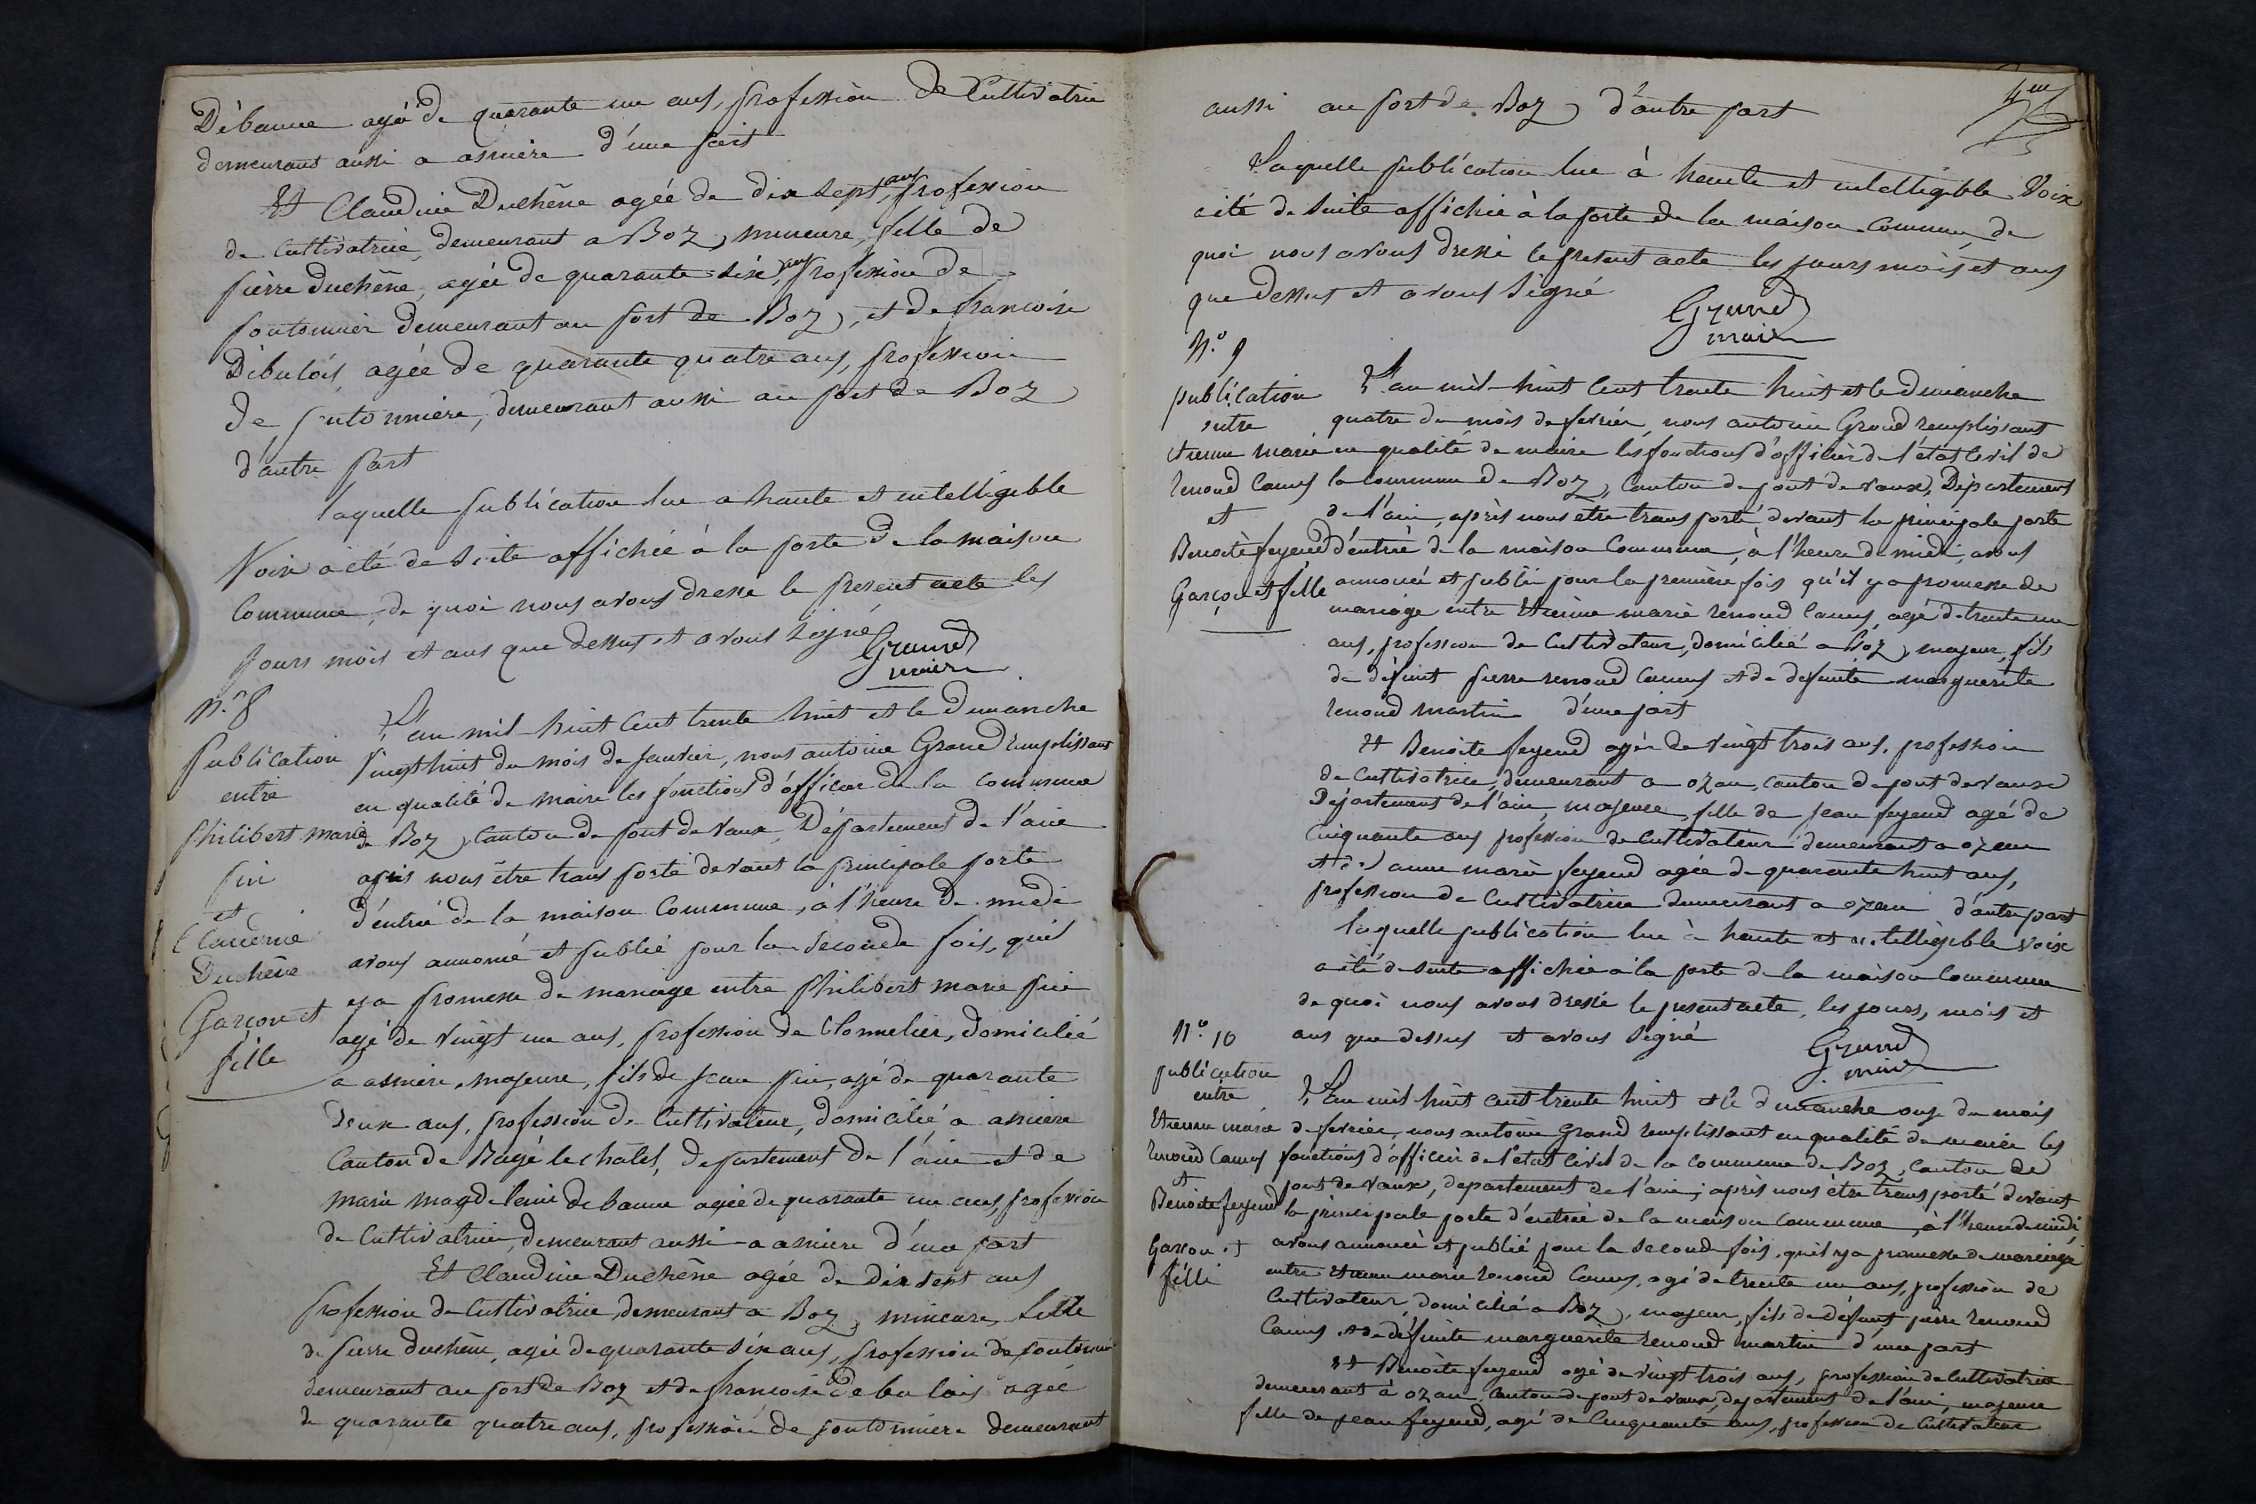 Débanne agé de quarante un ans, profession de Cultivatrice
demeurant aussi a asnière d'une part
Et Claudine Duchêne agée de dix sept ans, profession
de Cultivatrice, demeurant a Boz, mineure, fille de
pierre Duchêne, agée de quarante six ans, profession de
pontonnier demeurant au port de Boz, et de francoise
Débulois, agée de quarante quatre ans, profession
de pontonnière, demeurant aussi au port de Boz
d'autre part
laquelle publication lue a haute et intelligible
Voix a été de suite affichée à la porte de la maison
Commune, de quoi nous avons dressé le present acte les
jours mois et ans que dessus et avons signé
Grand
maire
N.º 8
Publication
entre
philibert marie
pin
et
Claudine
Duchêne
Garçon et
fille
L'an mil huit Cent trente huit et le Dimanche
vingt huit du mois de janvier, nous antoine Grand remplissant
en qualité de maire les fonctions d'officier de la commune
de Boz, canton de pont de vaux, Département de l'ain
après nous être transporté devant la principale porte
d'entrée de la maison Commune, à l'heure de midi
avons annoncé et publié pour la seconde fois, qu'il
y a promesse de mariage entre philibert marie pin
agé de vingt un ans, profession de tonnelier, domicilié
a asnière, majeure, fils de jean pin, agé de quarante
deux ans, profession de Cultivateur, domicilié a asniere
Canton de Bagé le chatel, departement de l'ain et de
marie magdelaine debanne agée de quarante un ans, profession
de Cultivatrice, demeurant aussi a asniere d'une part
Et Claudine Duchêne agée de dix sept ans
profession de Cultivatrice, demeurant a Boz, mineure, fille
de pierre duchêne, agée de quarante six ans, profession de pontonnier
demeurant au port de Boz et de francoise Debulois agée
de quarante quatre ans, profession de pontonniere demeurant
4me
aussi au port de Boz d'autre part
Laquelle publication lue à haute et intelligible Voix
a été de suite affichée à la porte de la maison Commune, de
quoi nous avons dressé le present acte les jours mois et ans
que dessus et avons signé
Grand
maire
N.º 9
publication
entre
etienne marie
renoud Camus
et
Benoite feyeud
Garçon et fille
L'an mil huit Cent trente huit et le dimanche
quatre du mois de fevrier, nous antoine Grand remplissant
en qualité de maire les fonctions d'officier de l'état Civil de
la commune de Boz, Canton de pont de vaux, Département
de l'ain, après nous etre transporté devant la principale porte
d'entrée de la maison Commune, à l'heure de midi, avons
annoncé et publié pour la première fois qu'il y a promesse de
mariage entre Etienne marie renoud Camus, agé de trente un
ans, profession de Cultivateur, domicilié a Boz, majeur, fils
de défunt pierre renoud Camus et de defunte marguerite
renoud martin d'une part
Et Benoite feyeud agée de vingt trois ans, profession
de Cultivatrice, demeurant a ozan, canton de pont de vaux
Département de l'ain, majeure, fille de jean feyeud agé de
Cinquante ans profession de Cultivateur demeurant a ozan
et de anne marie feyeud agée de quarante huit ans,
profession de Cultivatrice demeurant a ozan d'autre part
laquelle publication lue à haute et intelligible voix
a été de suite affichée a la porte de la maison Commune
de quoi nous avons dressé le present acte, les jours, mois et
ans que dessus et avons signé
Grand
maire
N.º 10
publication
entre
Etienne marie
renoud Camus
et
Benoite feyeud
Garçon et
fille
L'an mil huit cent trente huit et le dimanche onze du mois
de fevrier, nous antoine Grand remplissant en qualité de maire les
fonctions d'officier de l'etat Civil de la commune de Boz, canton de
pont de vaux, departement de l'ain; après nous être transporté devant
la principale porte d'entrée de la maison commune, à l'heure de midi,
avons annoncé et publié pour la seconde fois, qu'il y a promesse de mariage
entre etienne marie renoud Camus, agé de trente un ans, profession de
Cultivateur, domicilié a Boz, majeur, fils de défunt pierre renoud
Camus et de défunte marguerite renoud martin d'une part
Et Benoite feyeud agé de vingt trois ans, profession de Cultivatrice
demeurant à ozan, canton de pont de vaux, departement de l'ain, majeure
fille de jean feyeud, agé de Cinquante ans, profession de Cultivateur